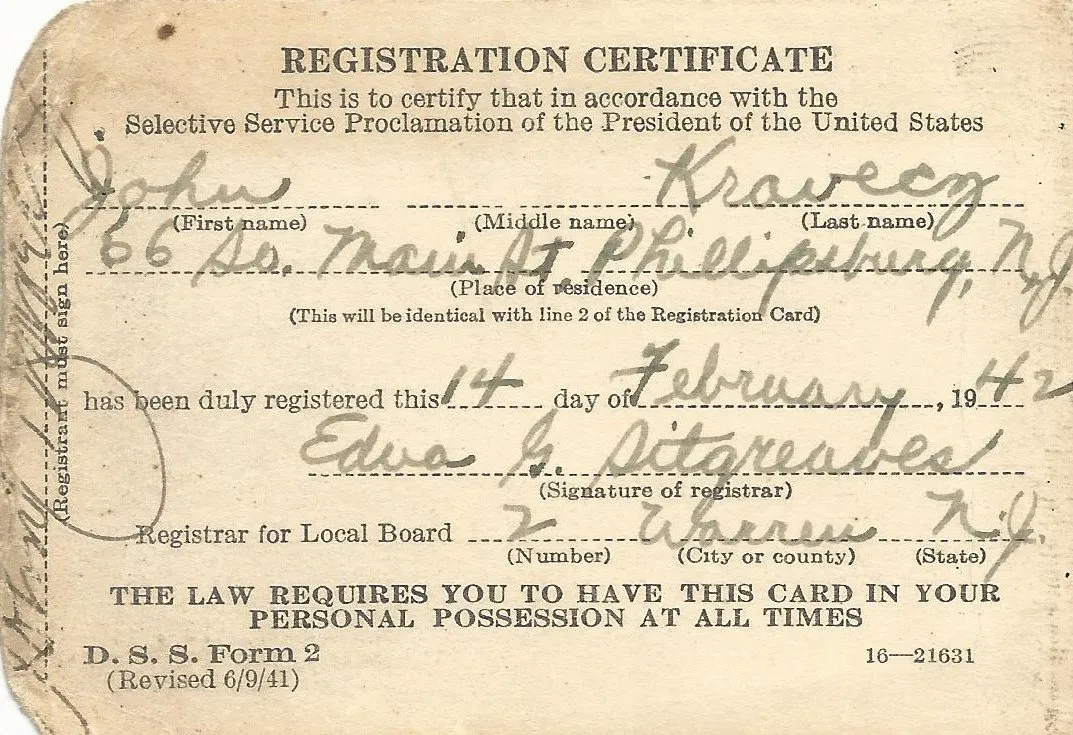 REGISTRATION CERTIFICATE
This is to certify that in accordance with the
Selective Service Proclamation of the President of the United States
John Kravecz
(First name) (Middle name) (Last name)
66 So. Main St. Phillipsburg, N.J.
(Place of residence)
(This will be identical with line 2 of the Registration Card)
has been duly registered this 14 day of February, 1942
Edna G. Sitgreaves
(Signature of registrar)
Registrar for Local Board 2 Warren N.J.
(Number) (City or county) (State)
THE LAW REQUIRES YOU TO HAVE THIS CARD IN YOUR
PERSONAL POSSESSION AT ALL TIMES
D. S. S. Form 2 16—21631
(Revised 6/9/41)
(Registrant must sign here)